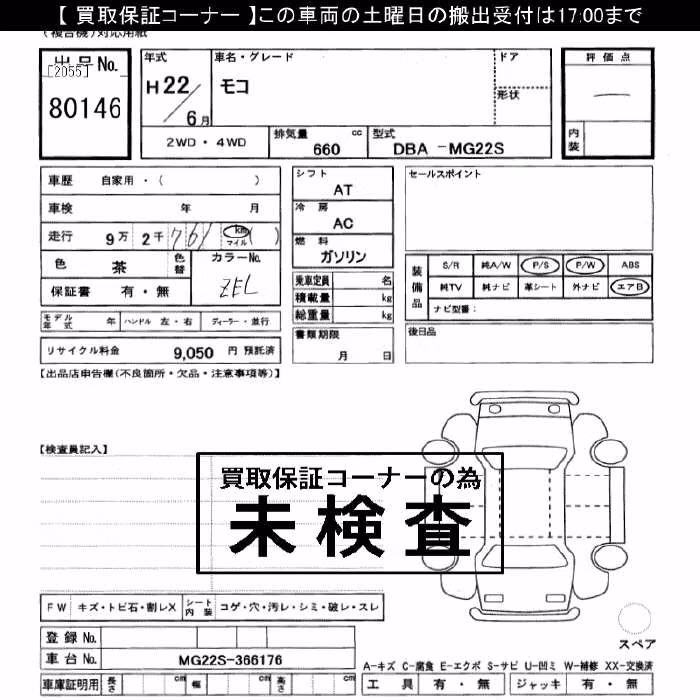 【 買取保証コーナー 】この車両の土曜日の搬出受付は17:00まで
(複合機)対応用紙
出品No.
[2055]
80146
年式
H22/6月
車名・グレード
モコ
ドア
形状
評価点
内装
2WD・4WD
排気量 cc
660
型式
DBA -MG22S
車歴 自家用・( )
車検 年 月
走行 9万 2千 761 km マイル ( )
色 茶 色替
カラーNo.
ZEL
保証書 有・無
モデル年式 年 ハンドル 左・右 ディーラー・並行
リサイクル料金 9,050 円 預託済
シフト
AT
冷房
AC
燃料
ガソリン
乗車定員 名
積載量 kg
総重量 kg
書類期限
月 日
セールスポイント
装備品
S/R 純A/W P/S P/W ABS
純TV 純ナビ 革シート 外ナビ エアB
ナビ型番:
後日品
【出品店申告欄(不良箇所・欠品・注意事項等)】
【検査員記入】
買取保証コーナーの為
未検査
FW キズ・トビ石・割レX シート内装 コゲ・穴・汚レ・シミ・破レ・スレ
登録No.
車台No. MG22S-366176
車庫証明用 長さ cm 幅 cm 高さ cm
スペア
A-キズ C-腐食 E-エクボ S-サビ U-凹ミ W-補修 XX-交換済
工具 有・無 ジャッキ 有・無